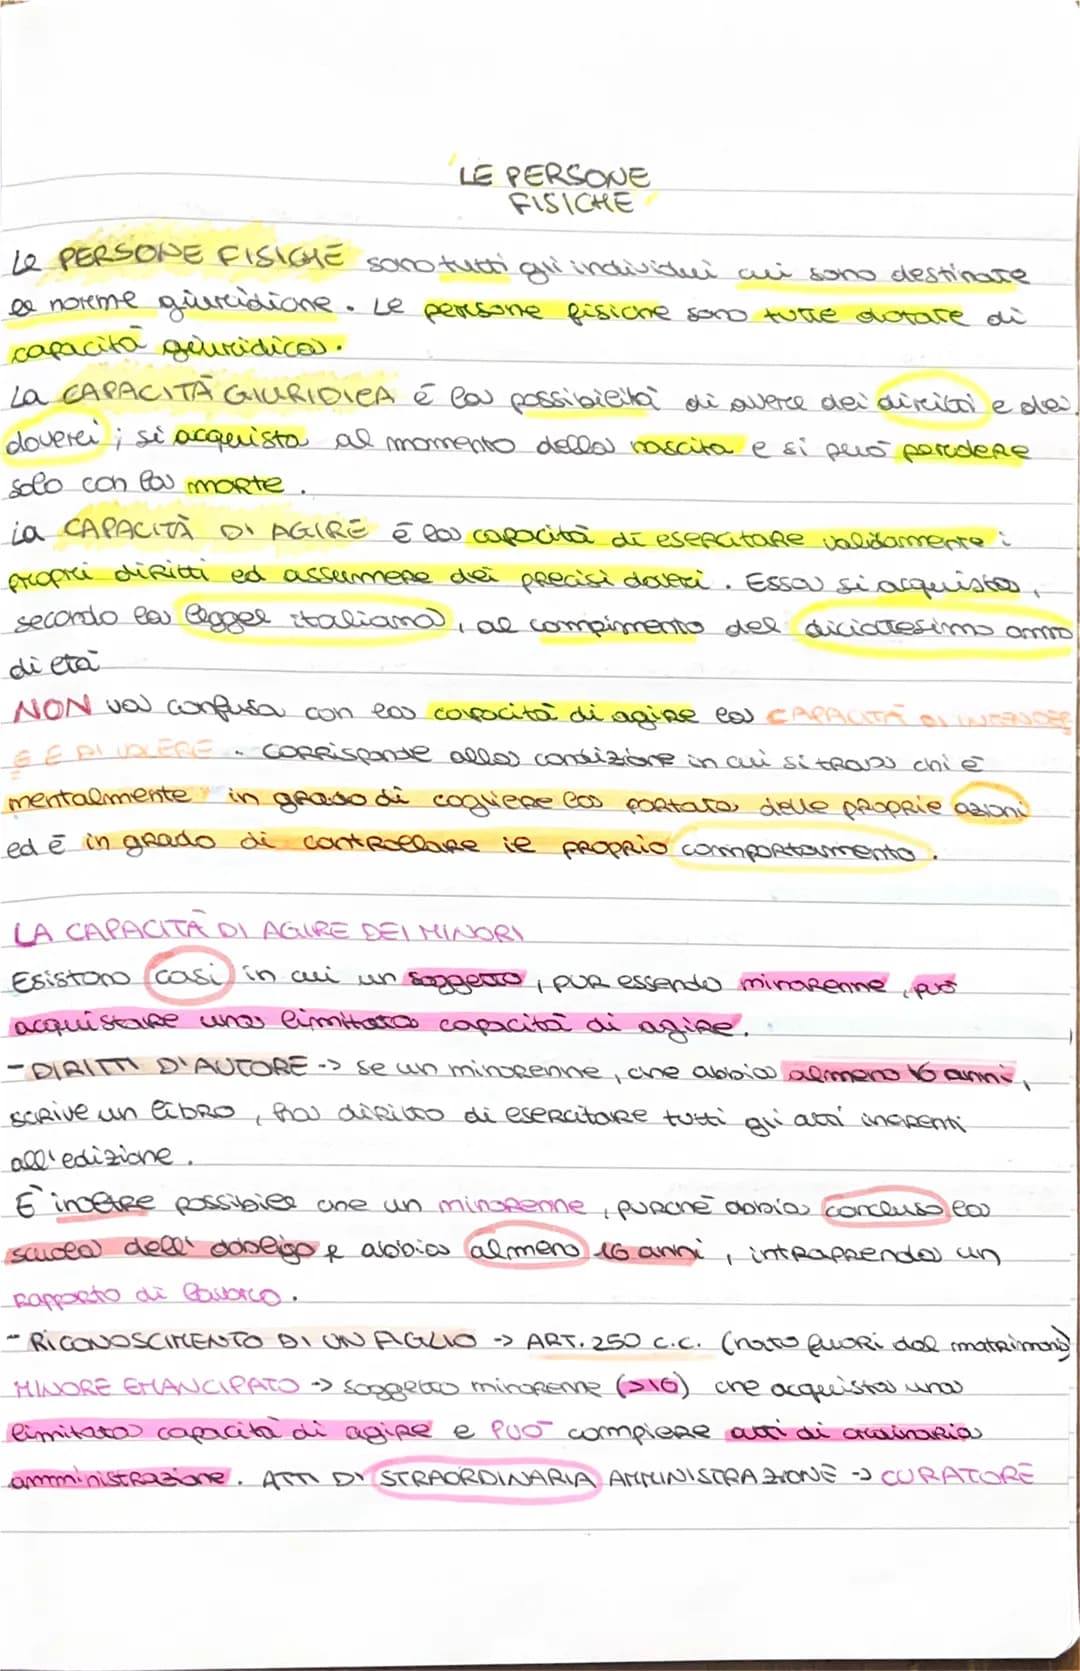 LE PERSONE
FISICHE
Le PERSONE FISICHE sono tutti gli individui cui sono destinate
le norme giuridiche. Le persone fisiche sono tutte dotate di
capacità giuridica.
La CAPACITÀ GIURIDICA é la possibilità di avere dei diritti e dei
doveri; si acquista al momento della nascita e si può perdere
solo con la morte.
La CAPACITÀ DI AGIRE é la capacità di esercitare validamente i
propri diritti ed assumere dei precisi doveri. Essa si acquista,
secondo la legge italiana, al compimento del diciottesimo anno
di età
NON va confusa con la capacità di agire la CAPACITÀ DI INTENDERE
E DI VOLERE. Corrisponde alla condizione in cui si trova chi è
mentalmente in grado di cogliere la portata delle proprie azioni
ed è in grado di controllare il proprio comportamento.
LA CAPACITÀ DI AGIRE DEI MINORI
Esistono casi in cui un soggetto, pur essendo minorenne, può
acquistare una limitata capacità di agire.
- DIRITTI D'AUTORE -> se un minorenne, che abbia almeno 16 anni,
scrive un libro, ha diritto di esercitare tutti gli atti inerenti
all'edizione.
E' inoltre possibile che un minorenne, purché abbia concluso la
scuola dell'obbligo e abbia almeno 16 anni, intraprenda un
rapporto di lavoro.
- RICONOSCIMENTO DI UN FIGLIO -> ART. 250 c.c. (nato fuori dal matrimonio)
MINORE EMANCIPATO -> soggetto minorenne (>16) che acquista una
limitata capacità di agire e può compiere atti di ordinaria
amministrazione. ATTI DI STRAORDINARIA AMMINISTRAZIONE -> CURATORE